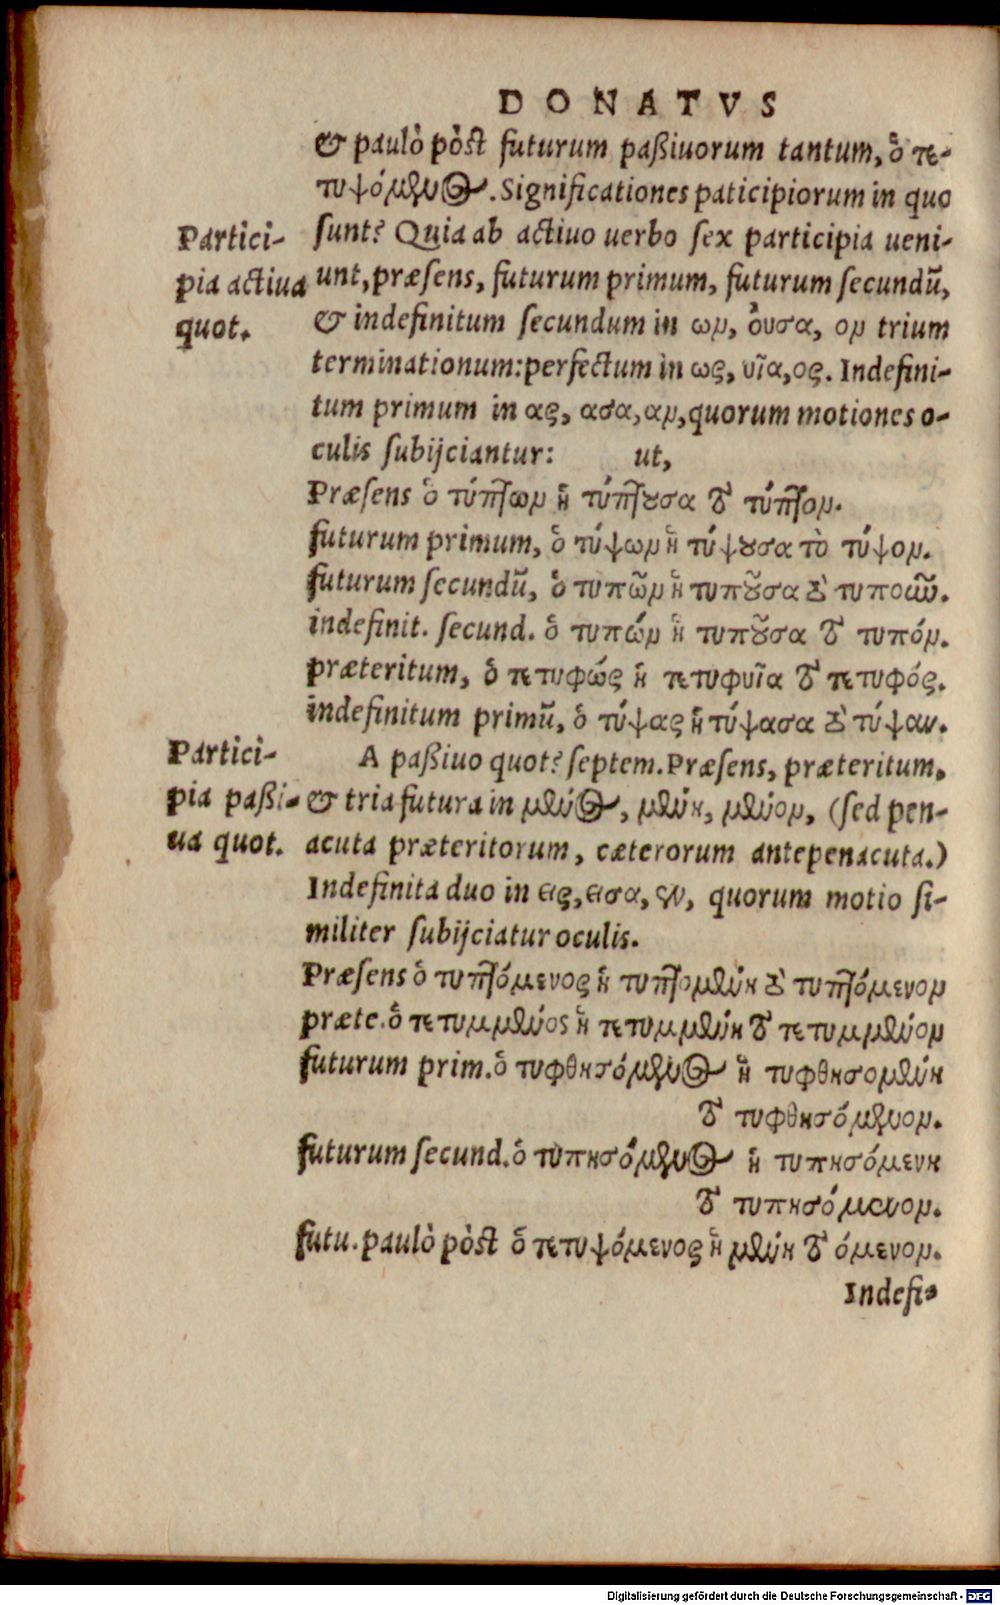 DONATVS
& paulò pòst futurum paßiuorum tantum, ὁ τε-
τυψόμενος. Significationes paticipiorum in quo
sunt? Quia ab actiuo uerbo sex participia ueni-
unt, præsens, futurum primum, futurum secundũ,
& indefinitum secundum in ων, ουσα, ον trium
terminationum: perfectum in ως, υῖα, ος. Indefini-
tum primum in ας, ασα, αν, quorum motiones o-
culis subijciantur: ut,
Præsens ὁ τύπτων ἡ τύπτουσα τὸ τύπτον.
futurum primum, ὁ τύψων ἡ τύψουσα τὸ τύψον.
futurum secundũ, ὁ τυπῶν ἡ τυποῦσα τὸ τυποῦν.
indefinit. secund. ὁ τυπών ἡ τυποῦσα τὸ τυπόν.
præteritum, ὁ τετυφώς ἡ τετυφυῖα τὸ τετυφός.
indefinitum primũ, ὁ τύψας ἡ τύψασα τὸ τύψαν.
Partici-
pia actiua
quot.
A paßiuo quot? septem. Præsens, præteritum,
& tria futura in μενος, μένη, μενον, (sed pen-
acuta præteritorum, cæterorum antepenacuta.)
Indefinita duo in εις, εισα, εν, quorum motio si-
militer subijciatur oculis.
Partici-
pia paßi-
ua quot.
Præsens ὁ τυπτόμενος ἡ τυπτομένη τὸ τυπτόμενον
præte. ὁ τετυμμένος ἡ τετυμμένη τὸ τετυμμένον
futurum prim. ὁ τυφθησόμενος ἡ τυφθησομένη
τὸ τυφθησόμενον.
futurum secund. ὁ τυπησόμενος ἡ τυπησόμενη
τὸ τυπησόμενον.
futu. paulò pòst ὁ τετυψόμενος ἡ μένη τὸ όμενον.
Indefi-
Digitalisierung gefördert durch die Deutsche Forschungsgemeinschaft - DFG